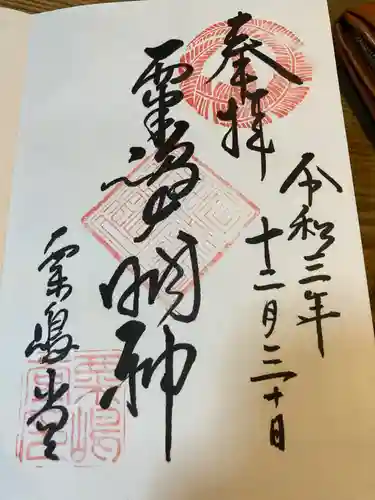 奉拝
令和三年
十二月三十日
粟嶋明神
粟嶋堂
粟嶋
堂印